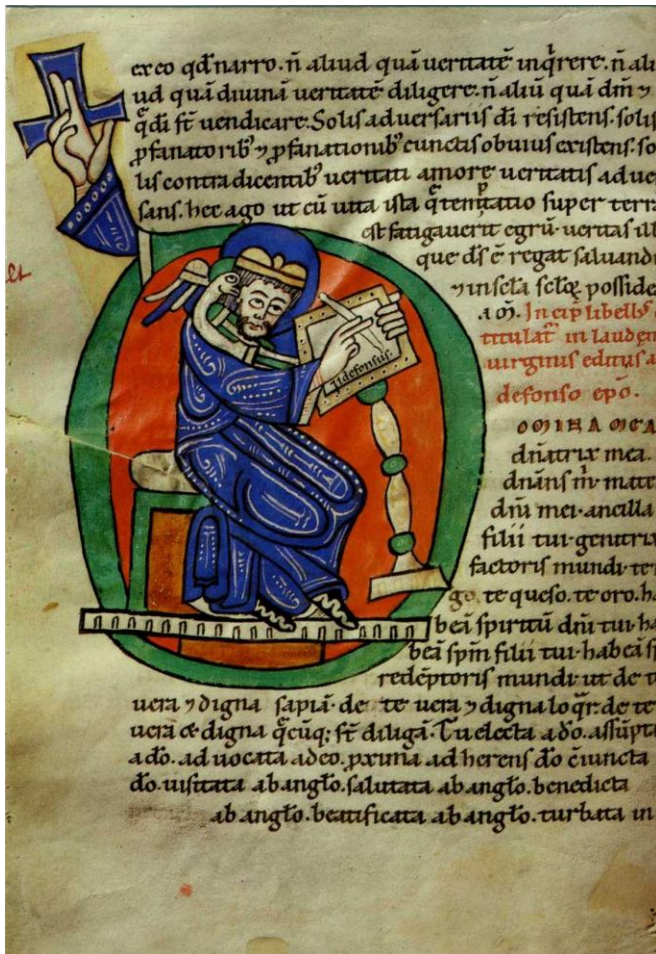 ex eo qd̄ narro. n̄ aliud quā ueritatē inq̄rere. n̄ ali
ud quā diuinā ueritatē diligere. n̄ aliū quā dm̄ ⁊
q̄ di st̄ uendicare. Solis aduersariis di resistens. solis
ꝓfanatoribꝰ ⁊ ꝓfanationibꝰ cunctis obuius existens. so
lis contradicentibꝰ ueritati amore ueritatis aduer
sans. hec ago ut cū uita ista q̄ temptatio super terrā
est fatigauerit egrū. ueritas ill
que ds̄ ē regat saluandū
⁊ in scła scloꝝ posside
Incip̄ libellꝰ
titulat᷑ in laudem
uirginis editus a
defonso ep̄o.
Ildefonsus.
dn̄atrix mea.
dn̄ans m̄. mate
dn̄i mei. ancilla
filii tui. genitrix
factoris mundi. te
go. te queso. te oro. ha
beā spiritū dn̄i tui. ha
beā spm̄ filii tui. habeā sp
redēptoris mundi. ut de te
uera ⁊ digna sapiā. de te uera ⁊ digna loq̄r. de te
uera & digna q̄cūq; st̄ diligā. Tu electa a do. assūpta
a do. aduocata a deo. ꝓxima adherens do ciuncta
do. uisitata ab angło. salutata ab angło. benedicta
ab angło. beatificata ab angło. turbata in